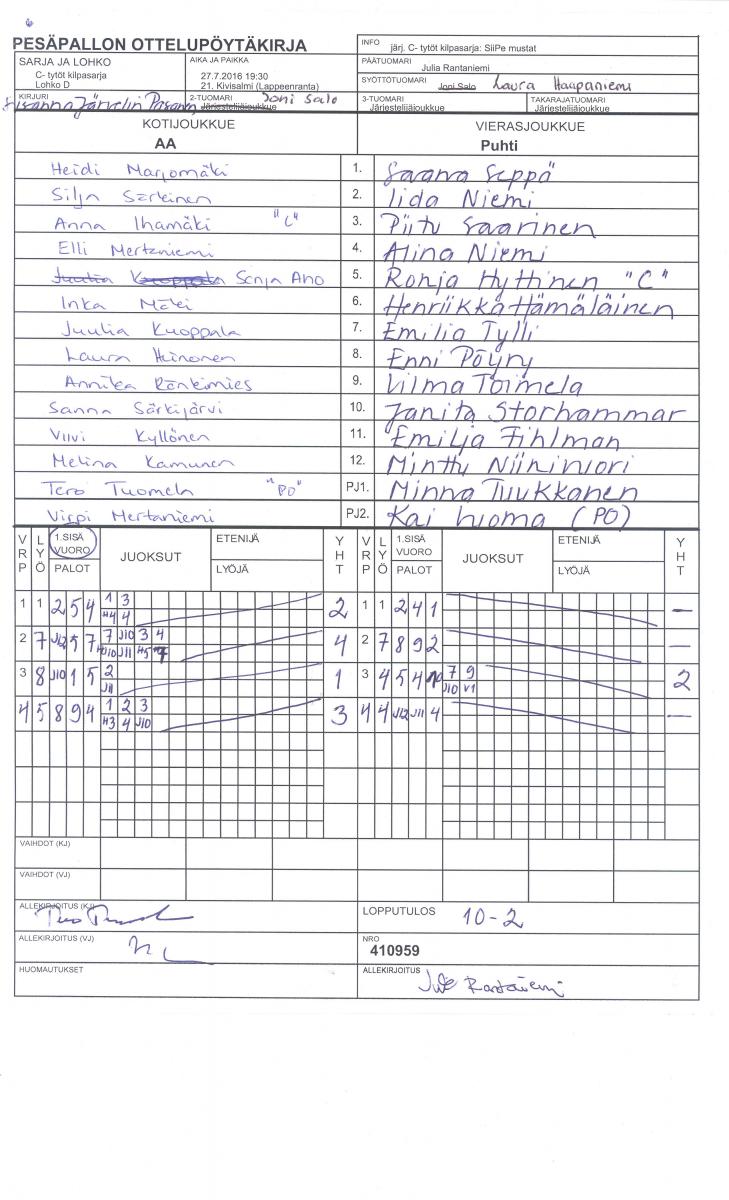 PESÄPALLON OTTELUPÖYTÄKIRJA
INFO järj. C- tytöt kilpasarja: SiiPe mustat
SARJA JA LOHKO
C- tytöt kilpasarja
Lohko D
AIKA JA PAIKKA
27.7.2016 19:30
21. Kivisalmi (Lappeenranta)
PÄÄTUOMARI
Julia Rantaniemi
SYÖTTÖTUOMARI Joni Salo Laura Haapaniemi
KIRJURI
Susanna Järvelin
2-TUOMARI Joni Salo
Järjestelijäjoukkue
3-TUOMARI
Järjestelijäjoukkue
TAKARAJATUOMARI
Järjestelijäjoukkue
KOTIJOUKKUE VIERASJOUKKUE
AA Puhti
Heidi Marjomäki 1. Saana Seppä
Silja Särkinen 2. Iida Niemi
Anna Ihamäki "C" 3. Piitu Saarinen
Elli Mertaniemi 4. Alina Niemi
Juulia Kuoppala Senja Aho 5. Ronja Hyttinen "C"
Inka Mäki 6. Henriikka Hämäläinen
Juulia Kuoppala 7. Emilia Tylli
Laura Heinonen 8. Enni Pöyry
Annika Rönkimies 9. Vilma Toimela
Sanna Särkijärvi 10. Janita Storhammar
Viivi Kyllönen 11. Emilja Fihlman
Melina Kamunen 12. Minttu Niinivuori
Tero Tuomela "PO" PJ1. Minna Tuukkanen
Virpi Mertaniemi PJ2. Kai Luoma (PO)
VRP LYÖ 1.SISÄ VUORO PALOT JUOKSUT ETENIJÄ LYÖJÄ YHT VRP LYÖ 1.SISÄ VUORO PALOT JUOKSUT ETENIJÄ LYÖJÄ YHT
1 1 2 5 4 1 3 2 1 1 2 4 1 –
H4 4
2 7 J12 5 7 7 J10 3 4 4 2 7 8 9 2 –
J10 J11 H5
3 8 J10 1 5 2 1 3 4 5 4 7 9 2
J11 J10 V1
4 5 8 9 4 1 2 3 3 4 4 J12 J11 4 –
H3 4 J10
VAIHDOT (KJ)
VAIHDOT (VJ)
ALLEKIRJOITUS (KJ)
LOPPUTULOS 10-2
ALLEKIRJOITUS (VJ)
NRO
410959
HUOMAUTUKSET
ALLEKIRJOITUS Julia Rantaniemi